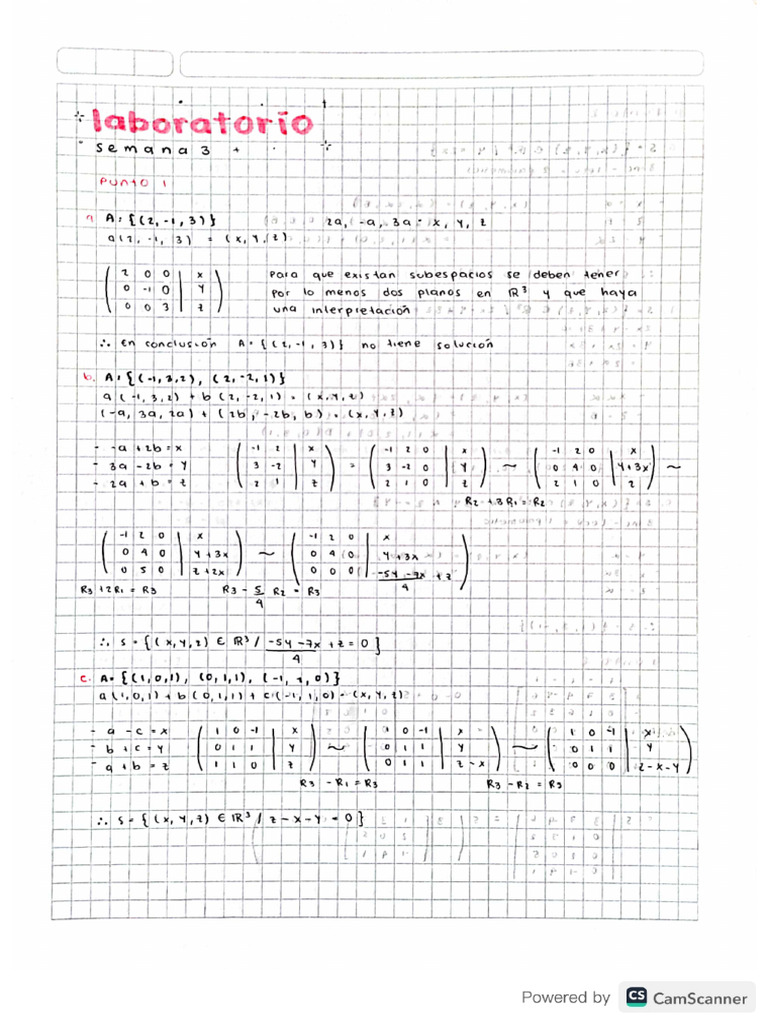 laboratorio
semana 3
Punto 1
a. A: {(2, -1, 3)} 2a, -a, 3a = x, y, z
a(2, -1, 3) = (x, y, z)
2 0 0 | x Para que existan subespacios se deben tener
0 -1 0 | y por lo menos dos planos en ℝ³ y que haya
0 0 3 | z una interpretación
∴ en conclusión A = {(2, -1, 3)} no tiene solución
b. A: {(-1, 3, 2), (2, -2, 1)}
a(-1, 3, 2) + b(2, -2, 1) = (x, y, z)
(-a, 3a, 2a) + (2b, -2b, b) = (x, y, z)
- -a + 2b = x -1 2 | x -1 2 0 | x -1 2 0 | x
- 3a - 2b = y 3 -2 | y = 3 -2 0 | y ~ 0 4 0 | y+3x ~
- 2a + b = z 2 1 | z 2 1 0 | z 2 1 0 | z
R2 + 3R1 = R2
-1 2 0 | x -1 2 0 | x
0 4 0 | y+3x ~ 0 4 0 | y+3x
0 5 0 | z+2x 0 0 0 | -5y-7x/4 + z
R3 + 2R1 = R3 R3 - 5/4 R2 = R3
∴ S = {(x, y, z) ∈ ℝ³ / -5y-7x/4 + z = 0}
c. A = {(1, 0, 1), (0, 1, 1), (-1, 1, 0)}
a(1, 0, 1) + b(0, 1, 1) + c(-1, 1, 0) = (x, y, z)
- a - c = x 1 0 -1 | x 1 0 -1 | x 1 0 -1 | x
- b + c = y 0 1 1 | y ~ 0 1 1 | y ~ 0 1 1 | y
- a + b = z 1 1 0 | z 0 1 1 | z-x 0 0 0 | z-x-y
R3 - R1 = R3 R3 - R2 = R3
∴ S = {(x, y, z) ∈ ℝ³ / z-x-y = 0}
Powered by CS CamScanner